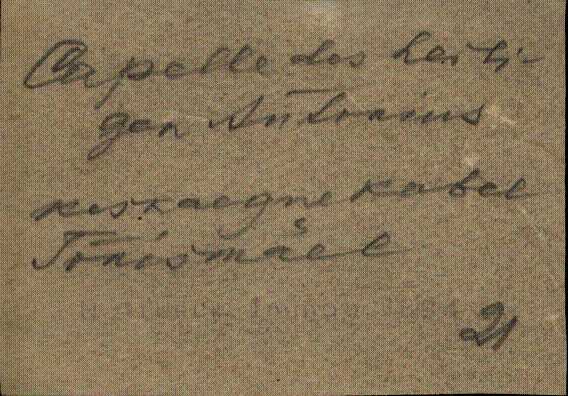 Capelle des heili-
gen Antonius
keskaegne kabel
Tõnismäel
21